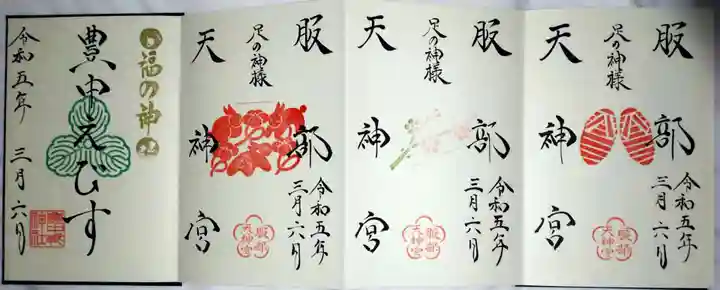 服部
足の神様
天神宮
令和五年
三月六日
服部
天神宮
服部
足の神様
天神宮
令和五年
三月六日
服部
天神宮
服部
足の神様
天神宮
令和五年
三月六日
服部
天神宮
福の神
豊中えびす
令和五年
三月六日